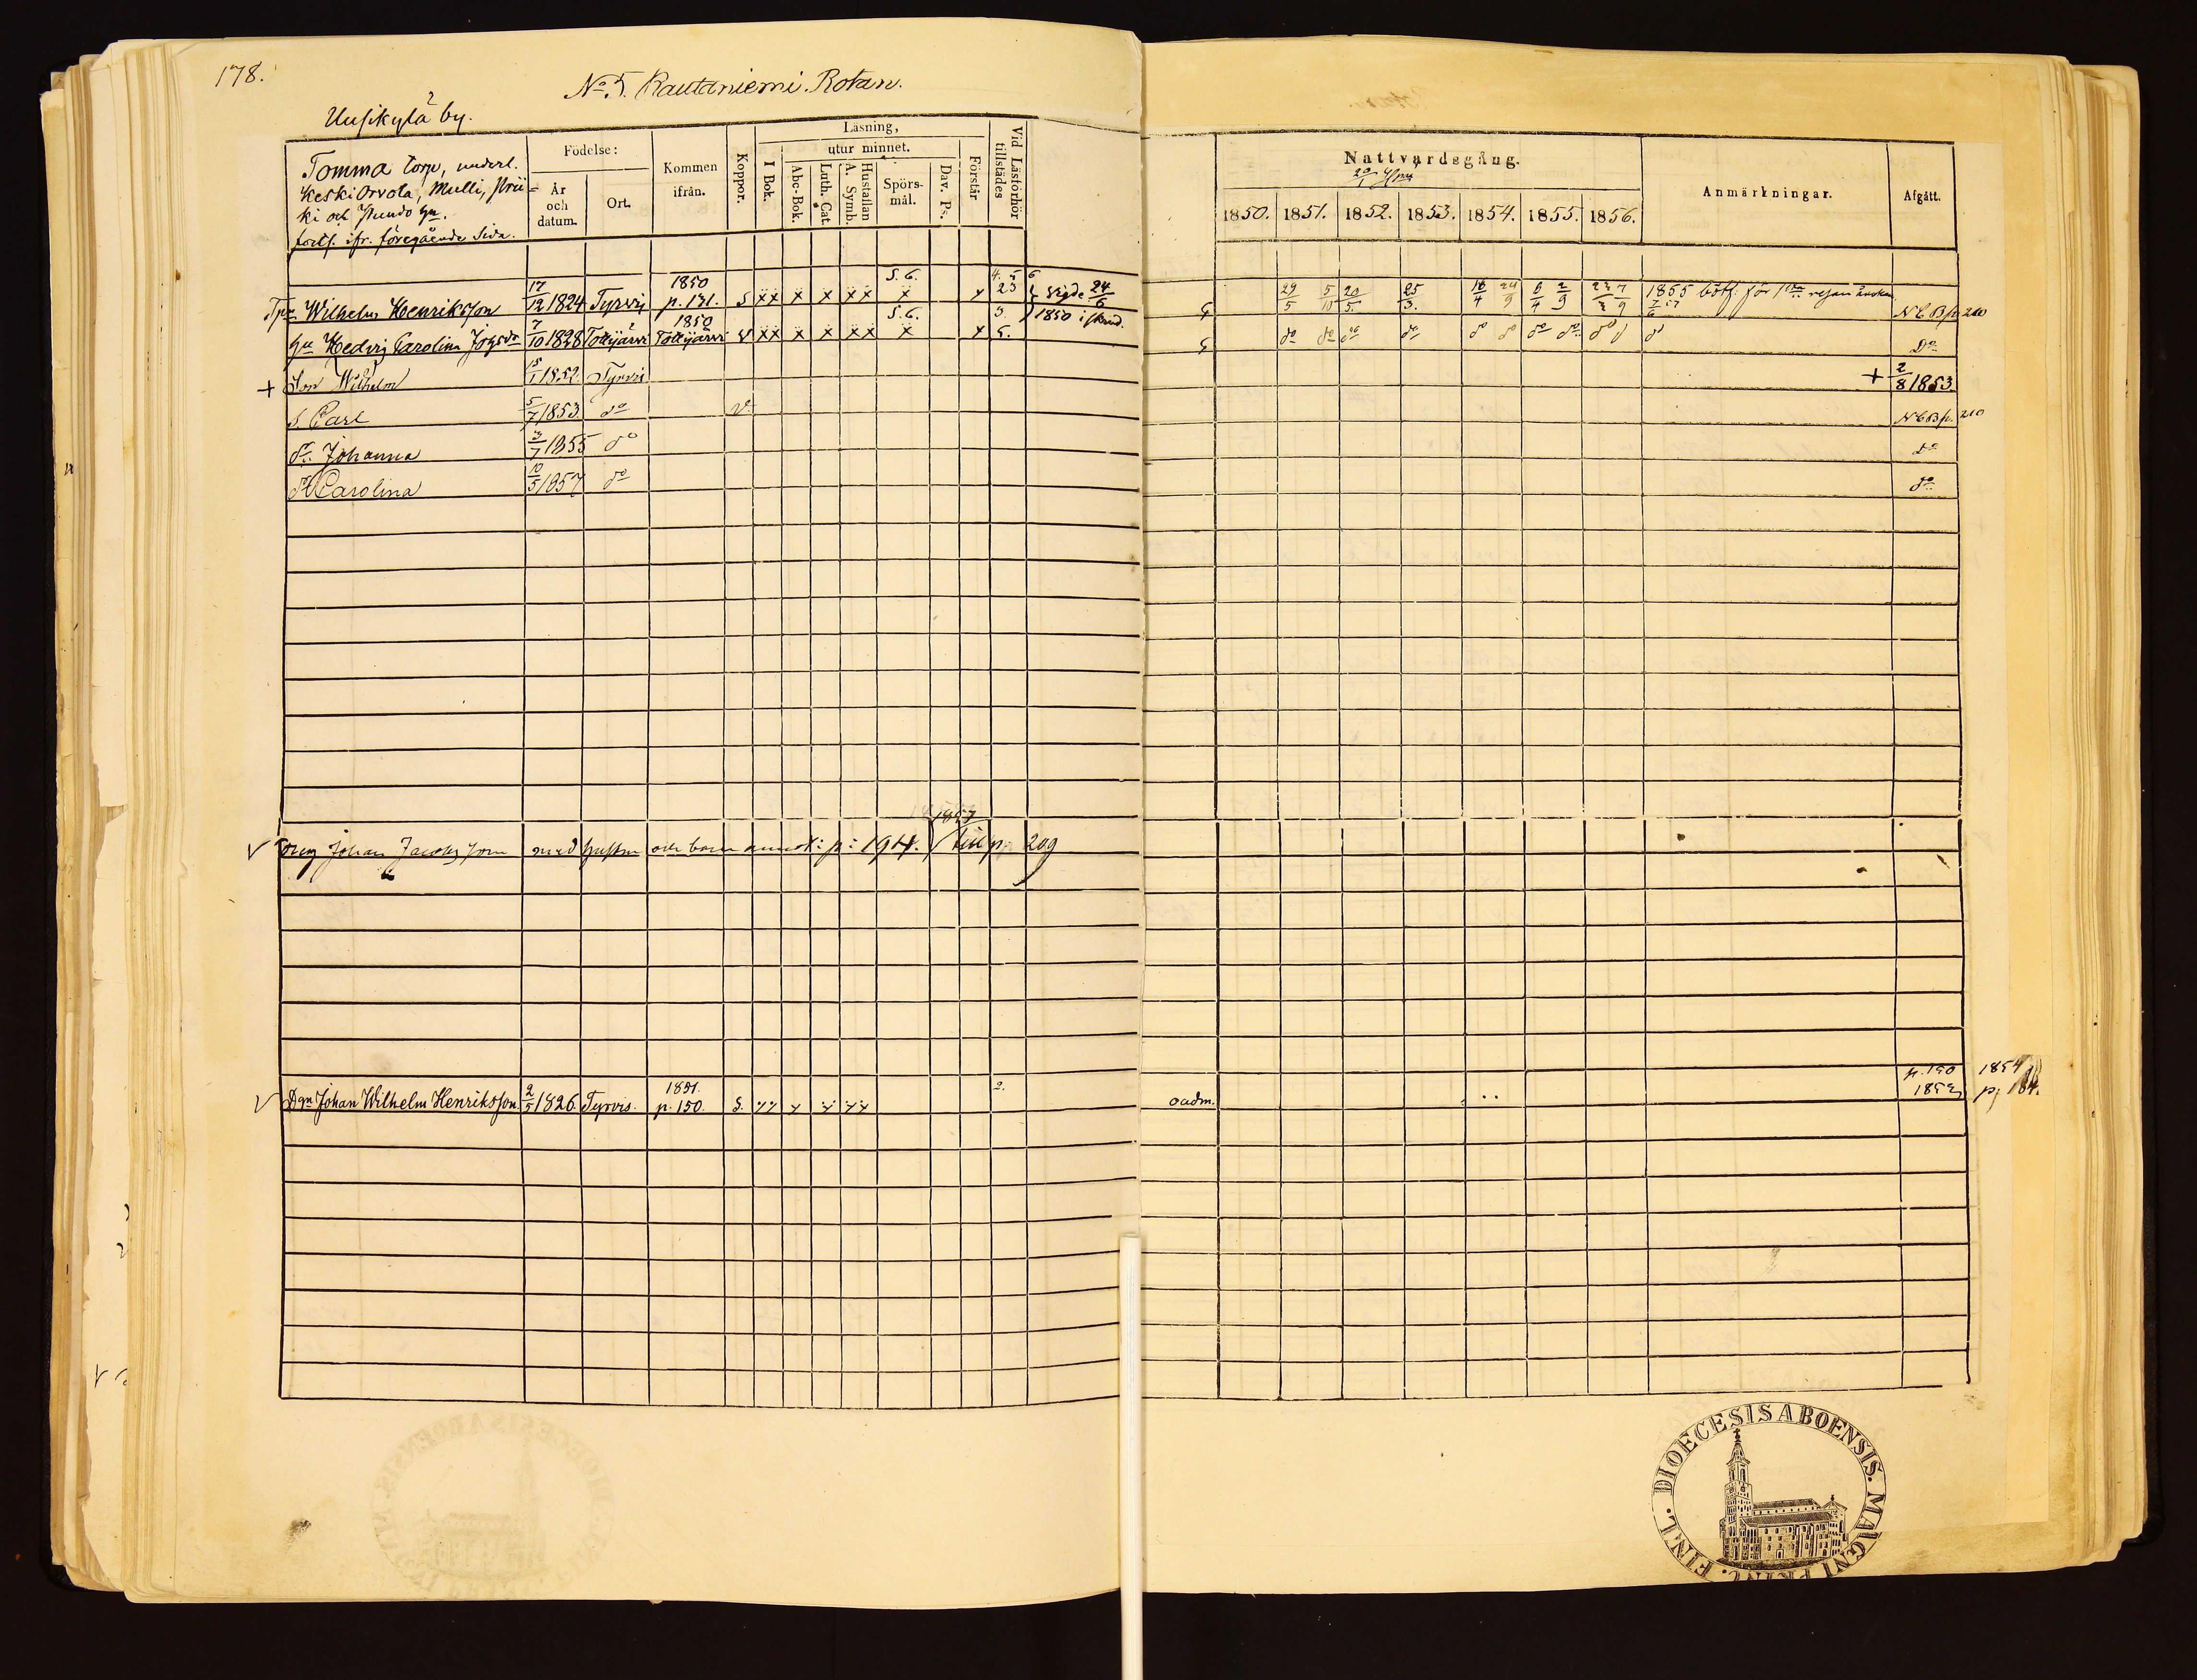 178.
No. 5. Rautaniemi. Rotan.
Uusikylä by.
Tomma torp, underl.
Keski Orvola, Mulli,
ki och
forts. ifr. föregående Sida.
Födelse:
År och datum.
Ort.
Kommen ifrån.
Koppor.
Läsning,
utur minnet.
I Bok.
Abc-Bok.
Luth. Cat.
Hustaflan A. Symb.
Spörsmål.
Dav. Ps.
Förstår
Vid Läsförhör tillstädes
Nattvardsgång.
1850. 1851. 1852. 1853. 1854. 1855. 1856.
Anmärkningar.
Afgått.
Wilhelm Henriksson 17/12 1824 Tyrvis 1850 p. 131. S xx x x xx S. 6. x x 4. 5 6 23 Vigde 24/6 29/5 5/10 20/5. 25/3. 16/4 24/9 6/4 2/9 7/9 1855 böff. för N C B p. 210
Hu Hedvig Carolina 7/10 1828 Tottijärvi 1850 Tottijärvi V xx x x xx S. 6. x x 3. 5. 1850 do do do do do do do do do Do
+ Son Wilhelm 15/1 1852. Tyrvis + 2/8 1853.
S. Carl 5/7 1853. do V. N C B p. 210
dr. Johanna 3/7 1855 do Do
dr Carolina 10/5 1857 do do
V Johan Jacobsson med hustru och barn annot: p: 194. 1857 till p. 209
V Dgn Johan Wilhelm Henriksson 2/5 1826. Tyrvis. 1851. p. 150. S. 2. oadm. p. 190 1854
1853 p. 184.
DIOECESIS ABOENSIS. MAGNI PRINC. FINL.